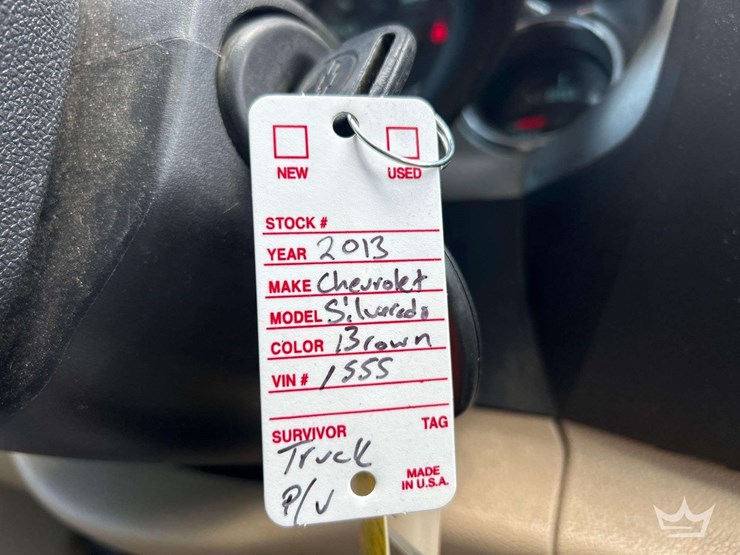 NEW USED
STOCK #
YEAR 2013
MAKE Chevrolet
MODEL Silverado
COLOR Brown
VIN # 1555
SURVIVOR TAG
Truck
P/U
MADE
IN U.S.A.